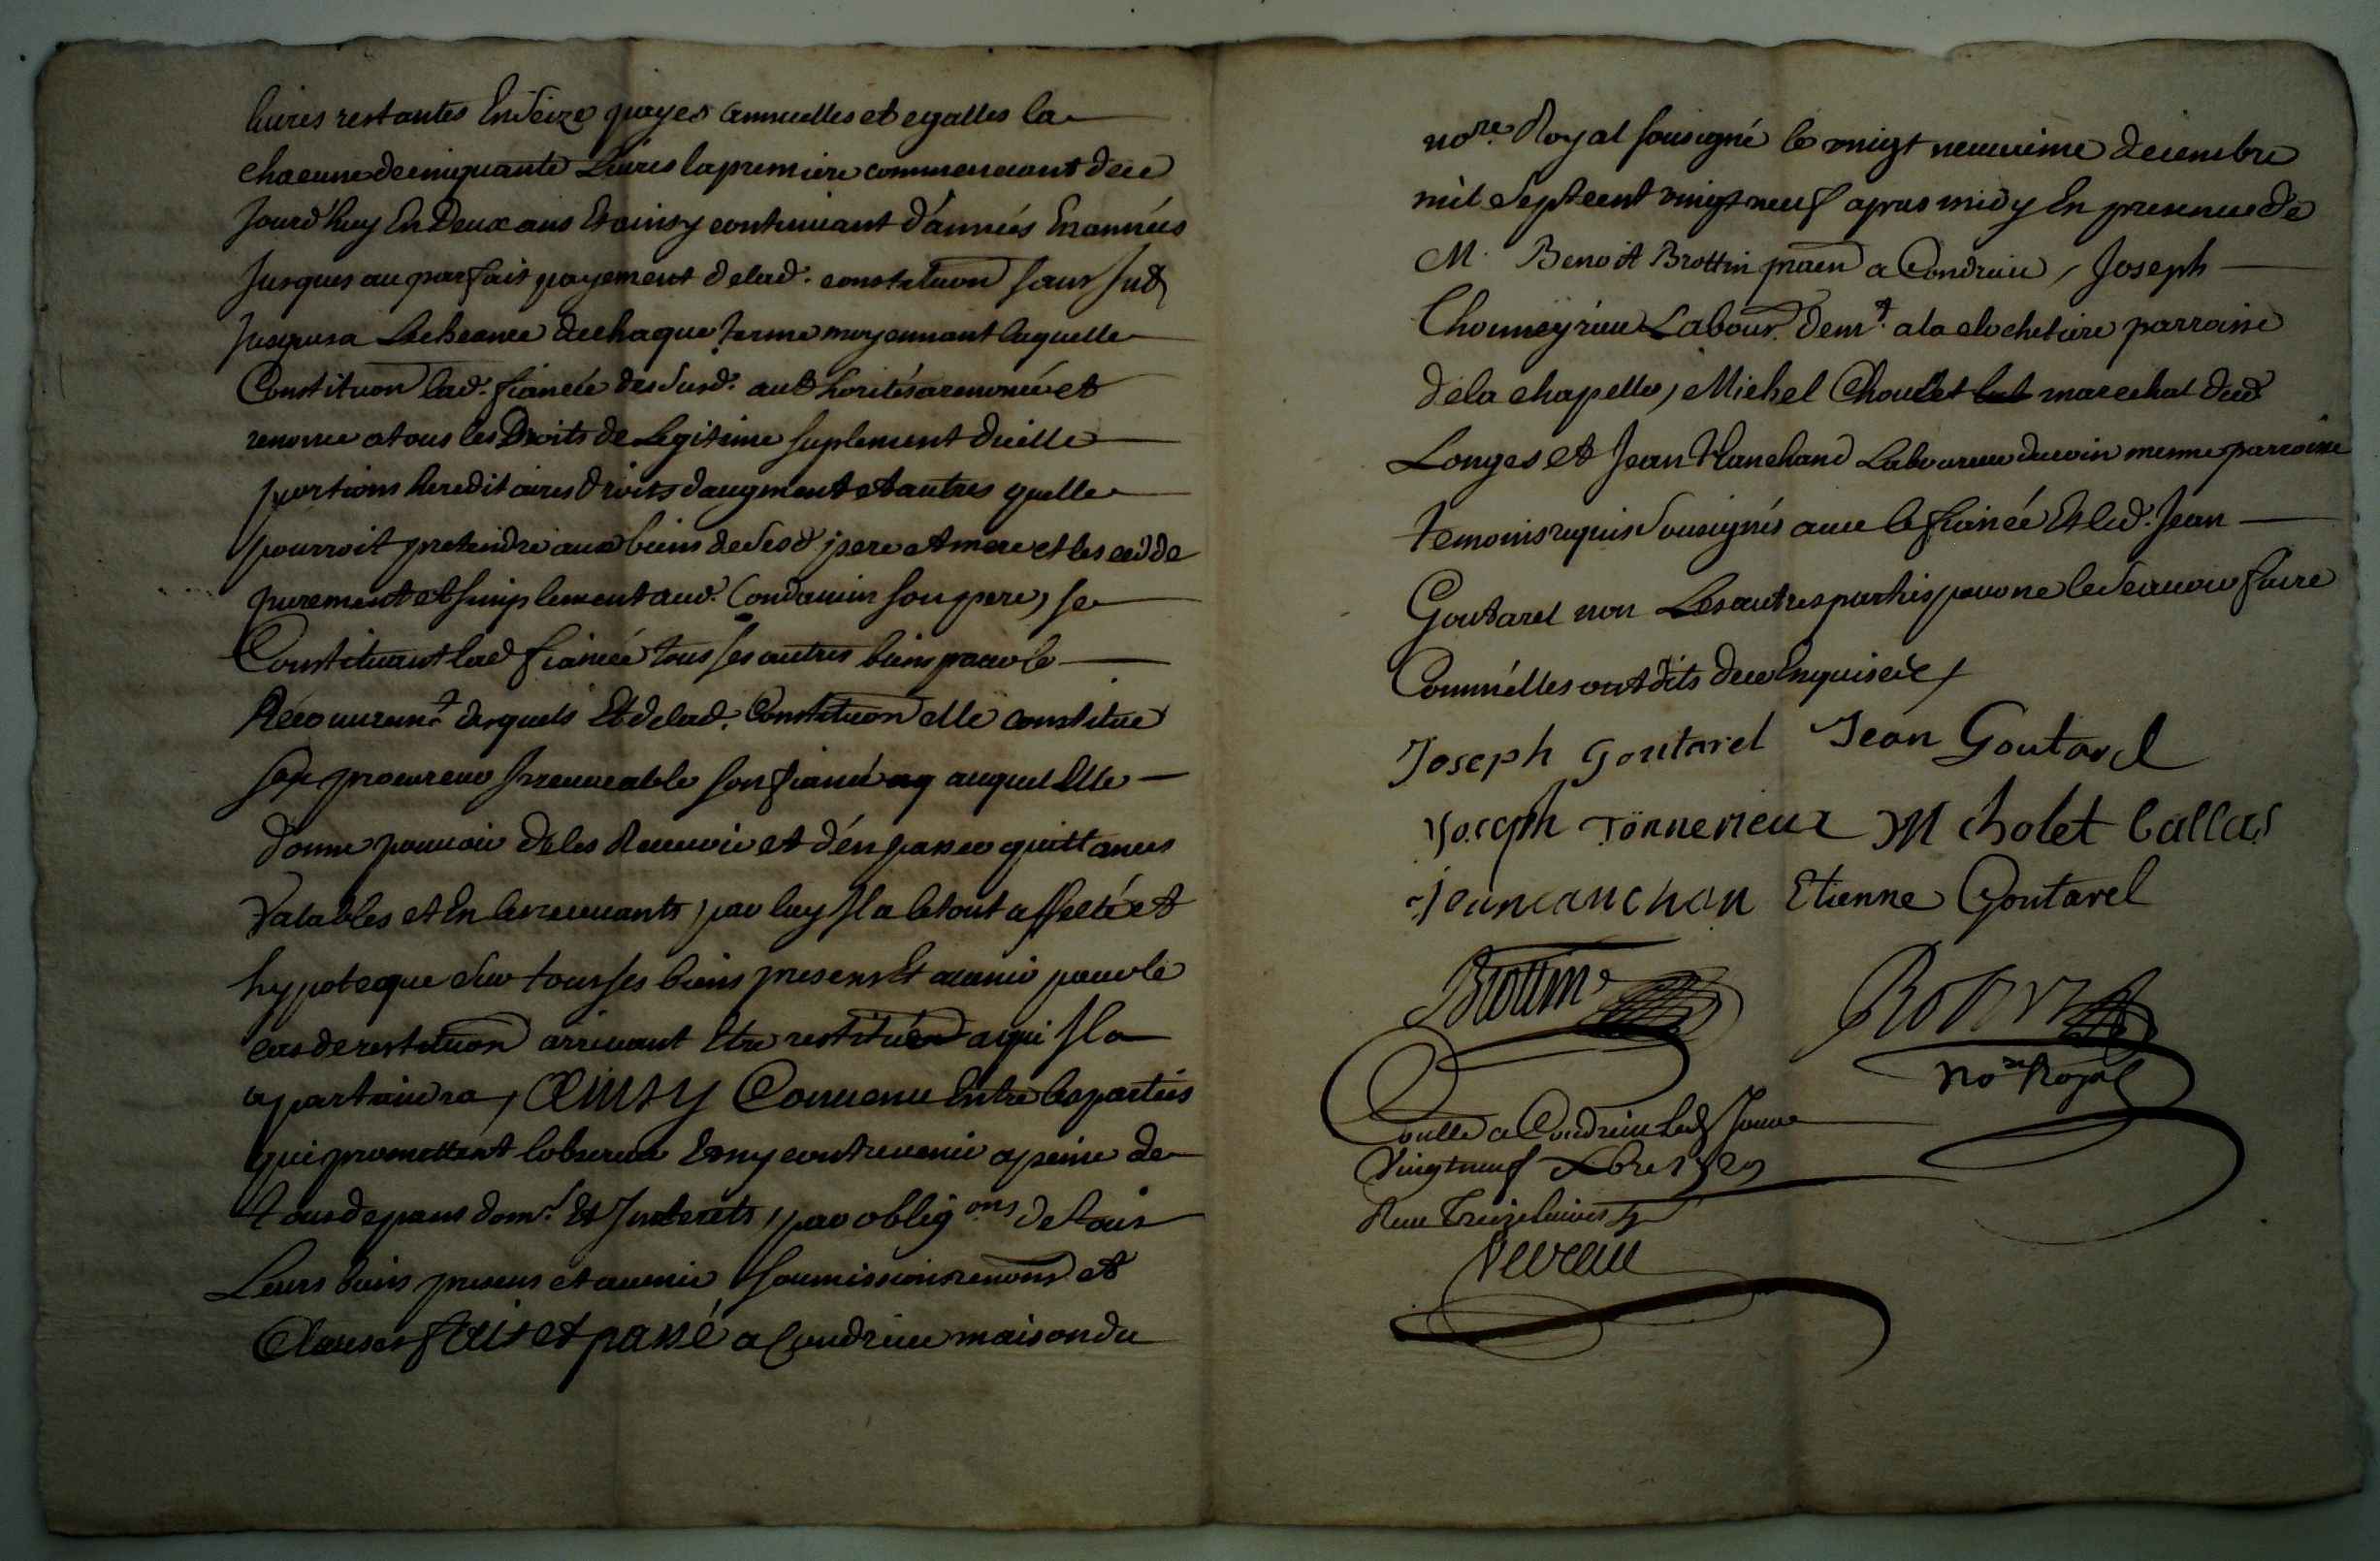 livres restantes En Seize payes annuelles et egalles la
chacune de cinquante Livres la premiere commencant de ce
Jourd'huy En Deux ans Et ainsy continuant d'années En années
Jusques au parfait payement de lad. constitution sans Int
Jusques a Lecheance de chaque terme moyennant laquelle
Constituon lad. fiancée des susd. authorités a renoncé et
renonce a tous les Droits de Legitime suplement d'icelle
portions hereditaires droits daugment et autres quelle
pourroit pretendre aux biens de sesd. pere et mere et les cedde
purement et simplement aud. Condamin son pere, se
Constituant lad fiancée tous ses autres biens pour le
Recouvrem.t desquels Et de lad. Constituon elle constitue
son procureur Irrevocable son fiancé auquel Elle
donne pouvoir de les Recevoir et d'en passer quittances
Valables et En les recevants par luy Il a le tout affecté et
hypoteque sur tous ses biens presens Et avenir pour le
cas de restituon arrivant Etre restitués a qui Il
apartaindra, Ainsy Convenu Entre les parties
qui promettent lobserver Et ny contrevenir a peine de
tous depans dom.s Et Interets, par oblig.ons de tous
Leurs biens presens et avenir soumissions renons et
Clauses fait et passé a Condrieu maison du
no.re Royal sousigné le vingt neuvième decembre
mil Sept cent vingt neuf apres midy En presence de
M. Benoit Brottin praen a Condrieu, Joseph
Labour. dem.t a la clochetiere parroisse
de la chapelle, Michel Choulet marechal dud
Longes et Jean Planchand Laboureur mesme parroisse
temoins requis Sousignés avec le fiancé Et led. Jean
Goutarel non Les autres parties pour ne le scavoir faire
Comm'elles ont dits de ce Enquises
Joseph Goutarel Jean Goutarel
Joseph Tönnerieux M Cholet Callas
Etienne Goutarel
Brottin Robin
no.re Royal
Conllé a Condrieu Led Jour
Vingt neuf Xbre 1729
Receu Treize livres